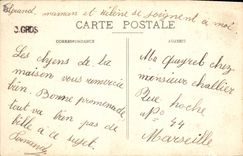 quand maman et hélène se soignent à moi
CARTE POSTALE
J. GROS
CORRESPONDANCE
ADRESSE
Les chyens de la
maison vous remercie
bien. Bonne promenade,
tout va bien pas de
bille à ce sujet.
Mr Gueyrel chez
monsieur challier
Rue hoche
No 44
Marseille